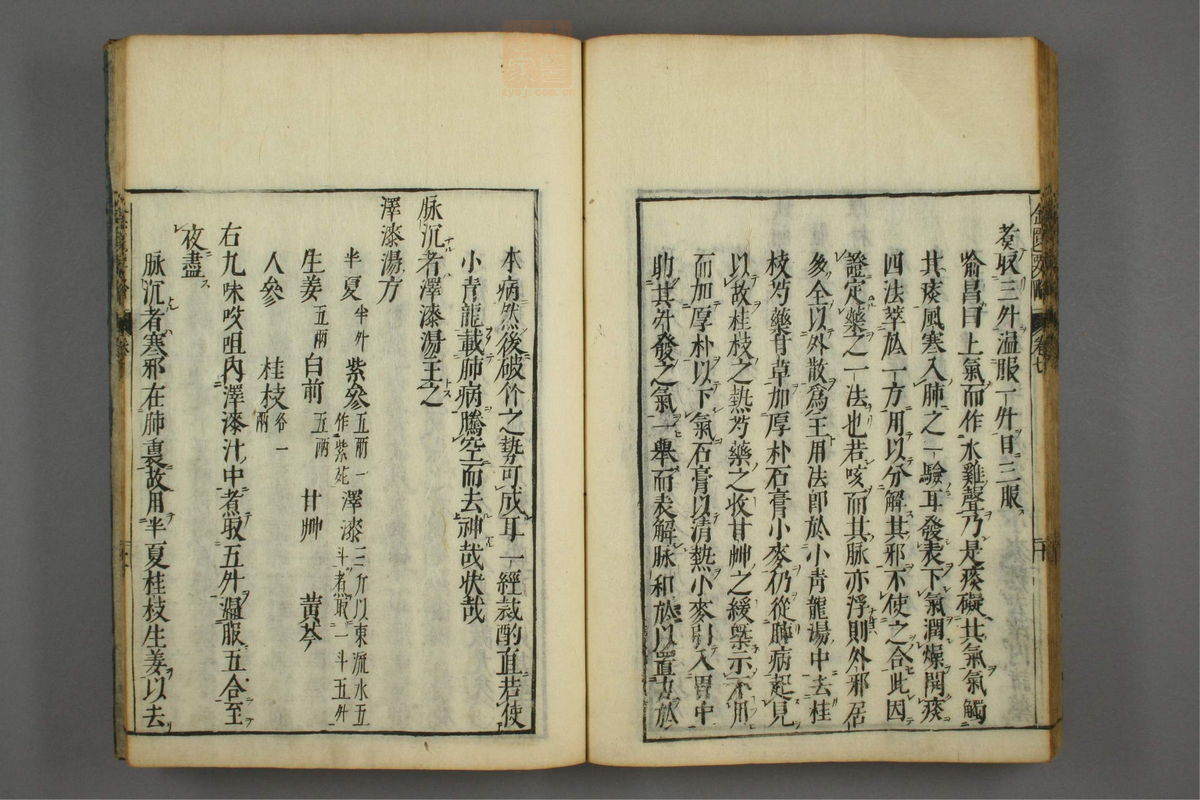 煮取三升溫服一升日三服
喻昌曰上氣而作水雞聲乃是痰礙其氣氣觸
其痰風寒入肺之一驗耳發表下氣潤燥開痰
四法萃於一方用以分解其邪不使之合此因
證定藥之一法也若咳而其脉亦浮則外邪居
多全以外散爲主用法卽於小青龍湯中去桂
枝芍藥甘草加厚朴石膏小麥仍從肺病起見
以故桂枝之熱芍藥之收甘艸之緩槩示不用
而加厚朴以下氣石膏以清熱小麥引入胃中
助其升發之氣一舉而表解脉和於以置力於
本病然後破竹之勢可成耳一經裁酌直若使
小青龍載肺病騰空而去神哉狀哉
脉沉者澤漆湯主之
澤漆湯方
半夏半升 紫參五兩一作紫菀 澤漆三斤以東流水五斗煮取一斗五升
生姜五兩 白前五兩 甘艸 黃芩
人參 桂枝各一兩
右九味㕮咀內澤漆汁中煮取五升溫服五合至
夜盡
脉沉者寒邪在肺裏故用半夏桂枝生姜以去